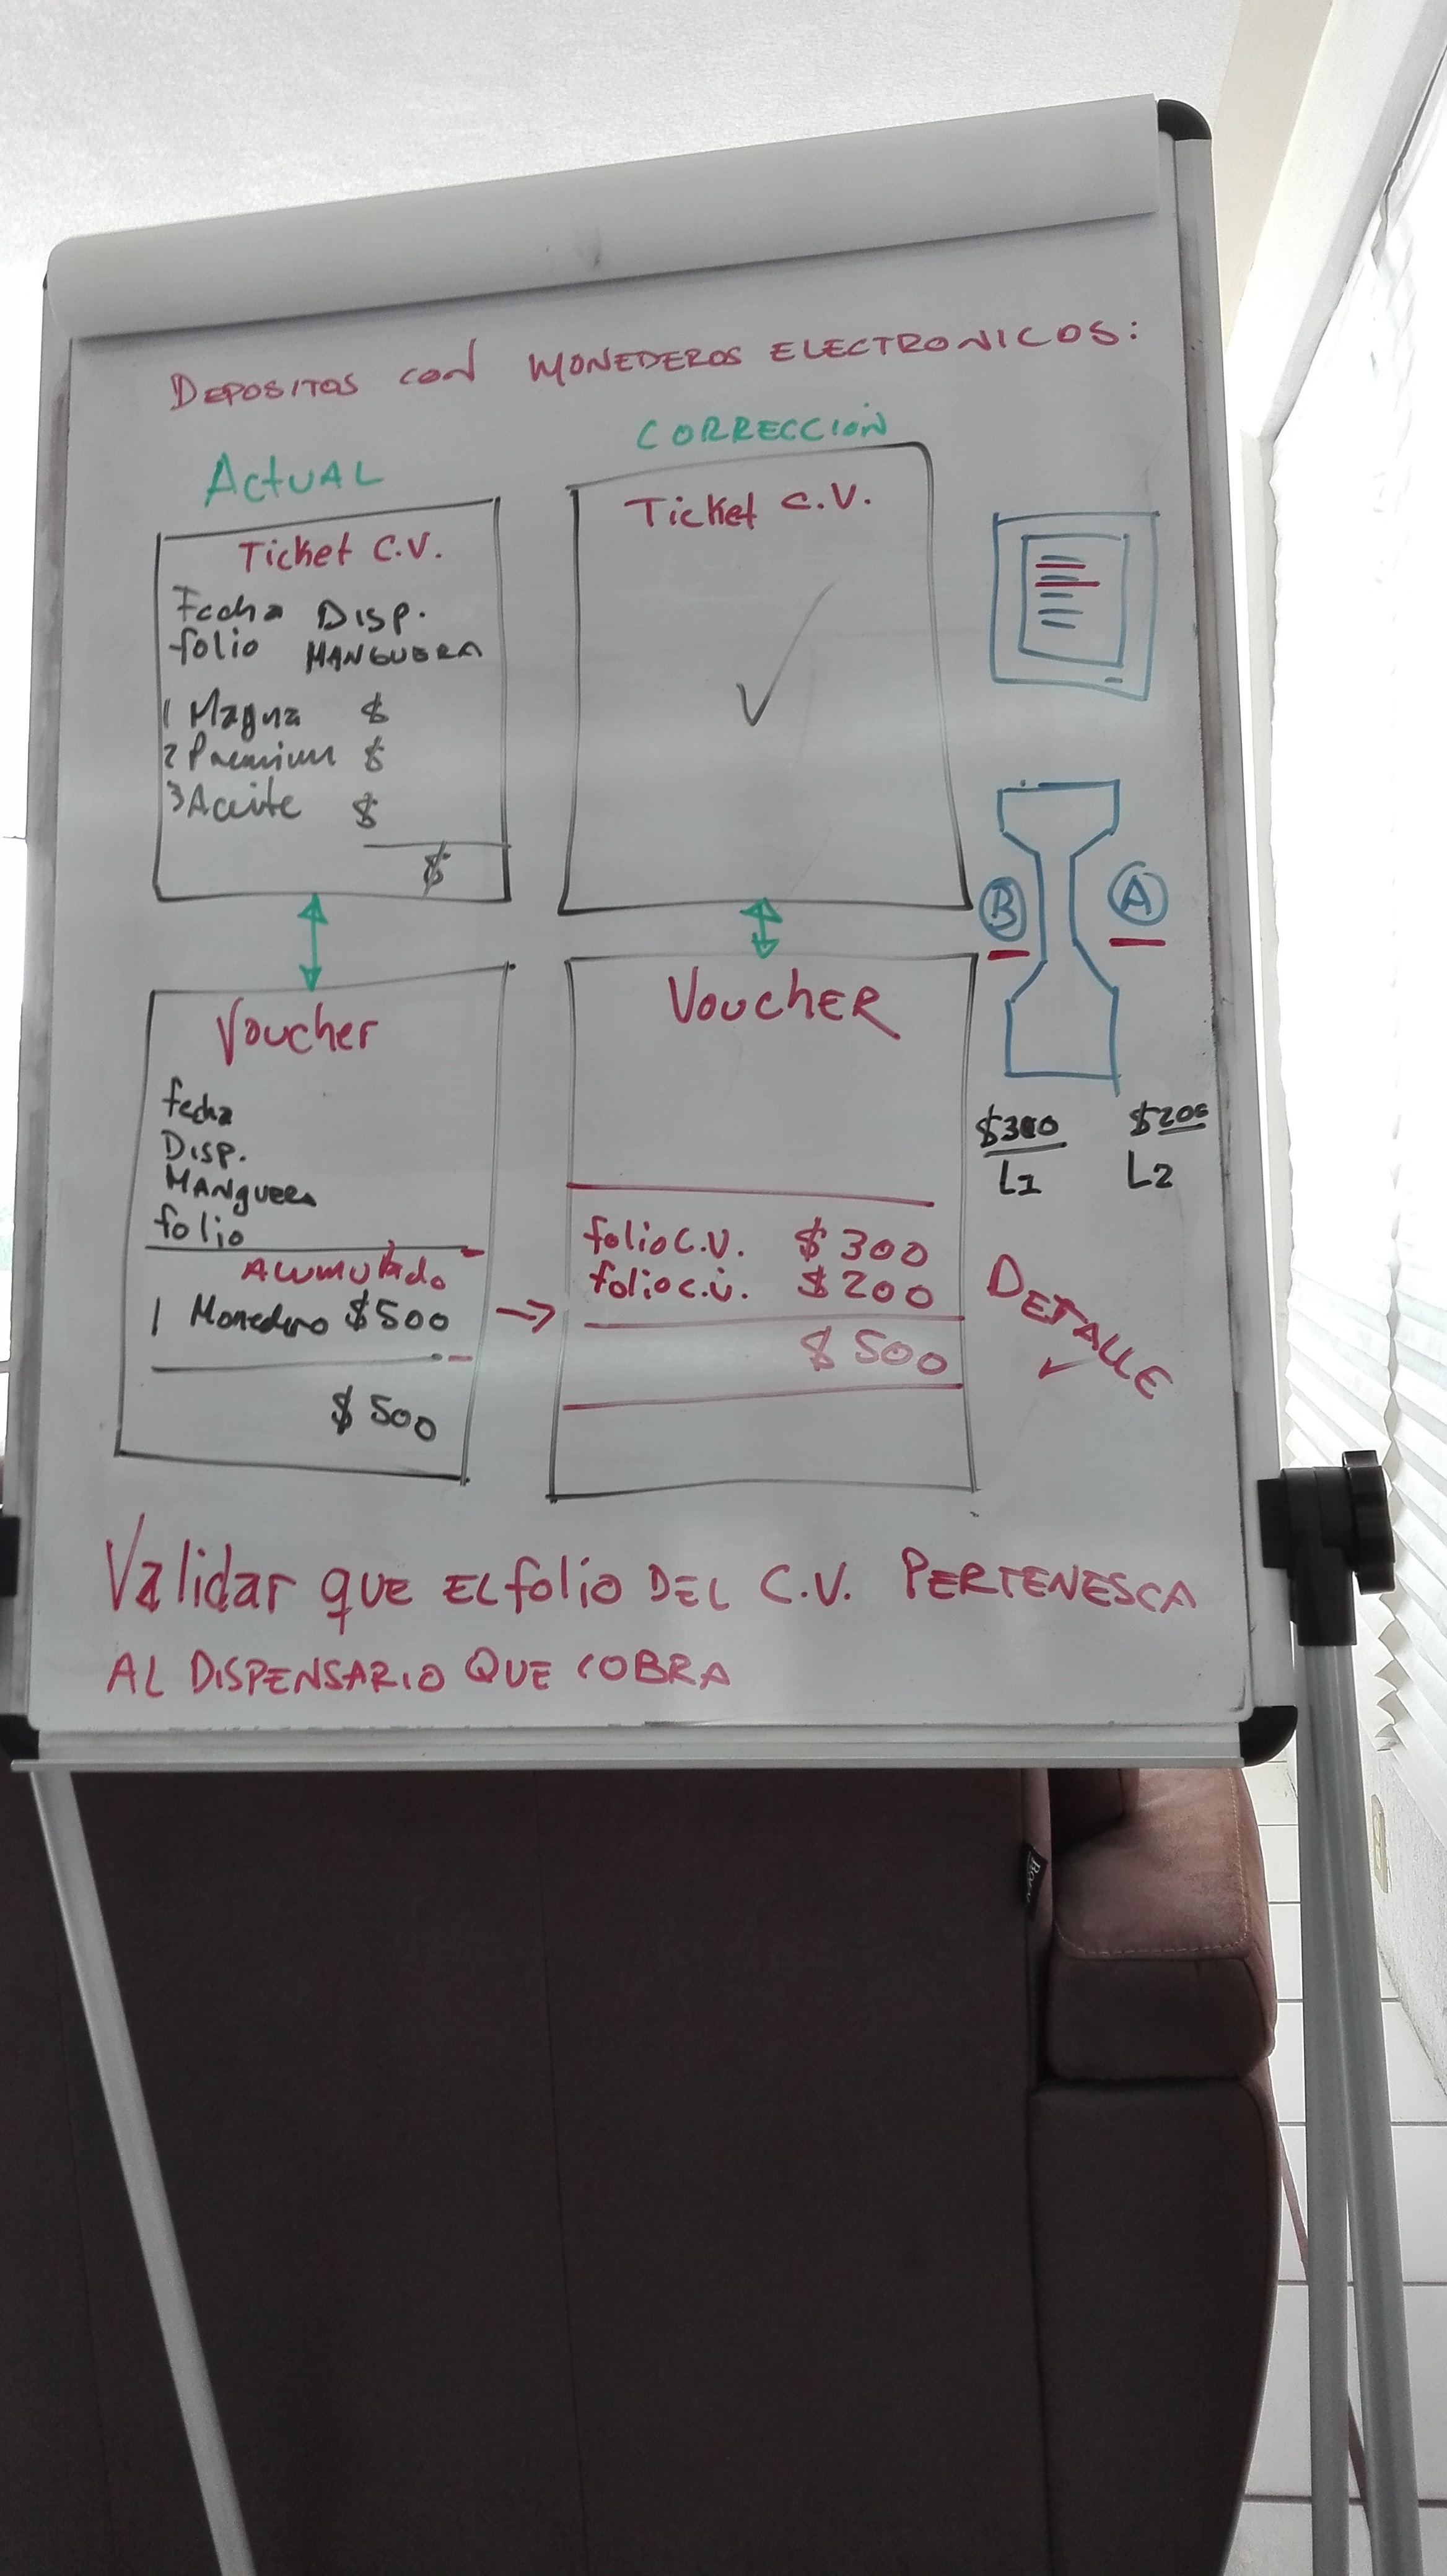 DEPOSITOS CON MONEDEROS ELECTRONICOS:
ACTUAL
Ticket C.V.
Fecha DISP.
folio MANGUERA
1 Magna $
2 Premium $
3 Aceite $
$
Voucher
fecha
DISP.
MANguera
folio
ACUMULado
1 Monedero $500
$500
CORRECCIÓN
Ticket C.V.
VOUCHER
folio C.V. $300
folio c.v. $200
$500
B
A
$300
L1
$200
L2
DETALLE
Validar que EL folio DEL C.V. PERTENESCA
AL DISPENSARIO QUE COBRA